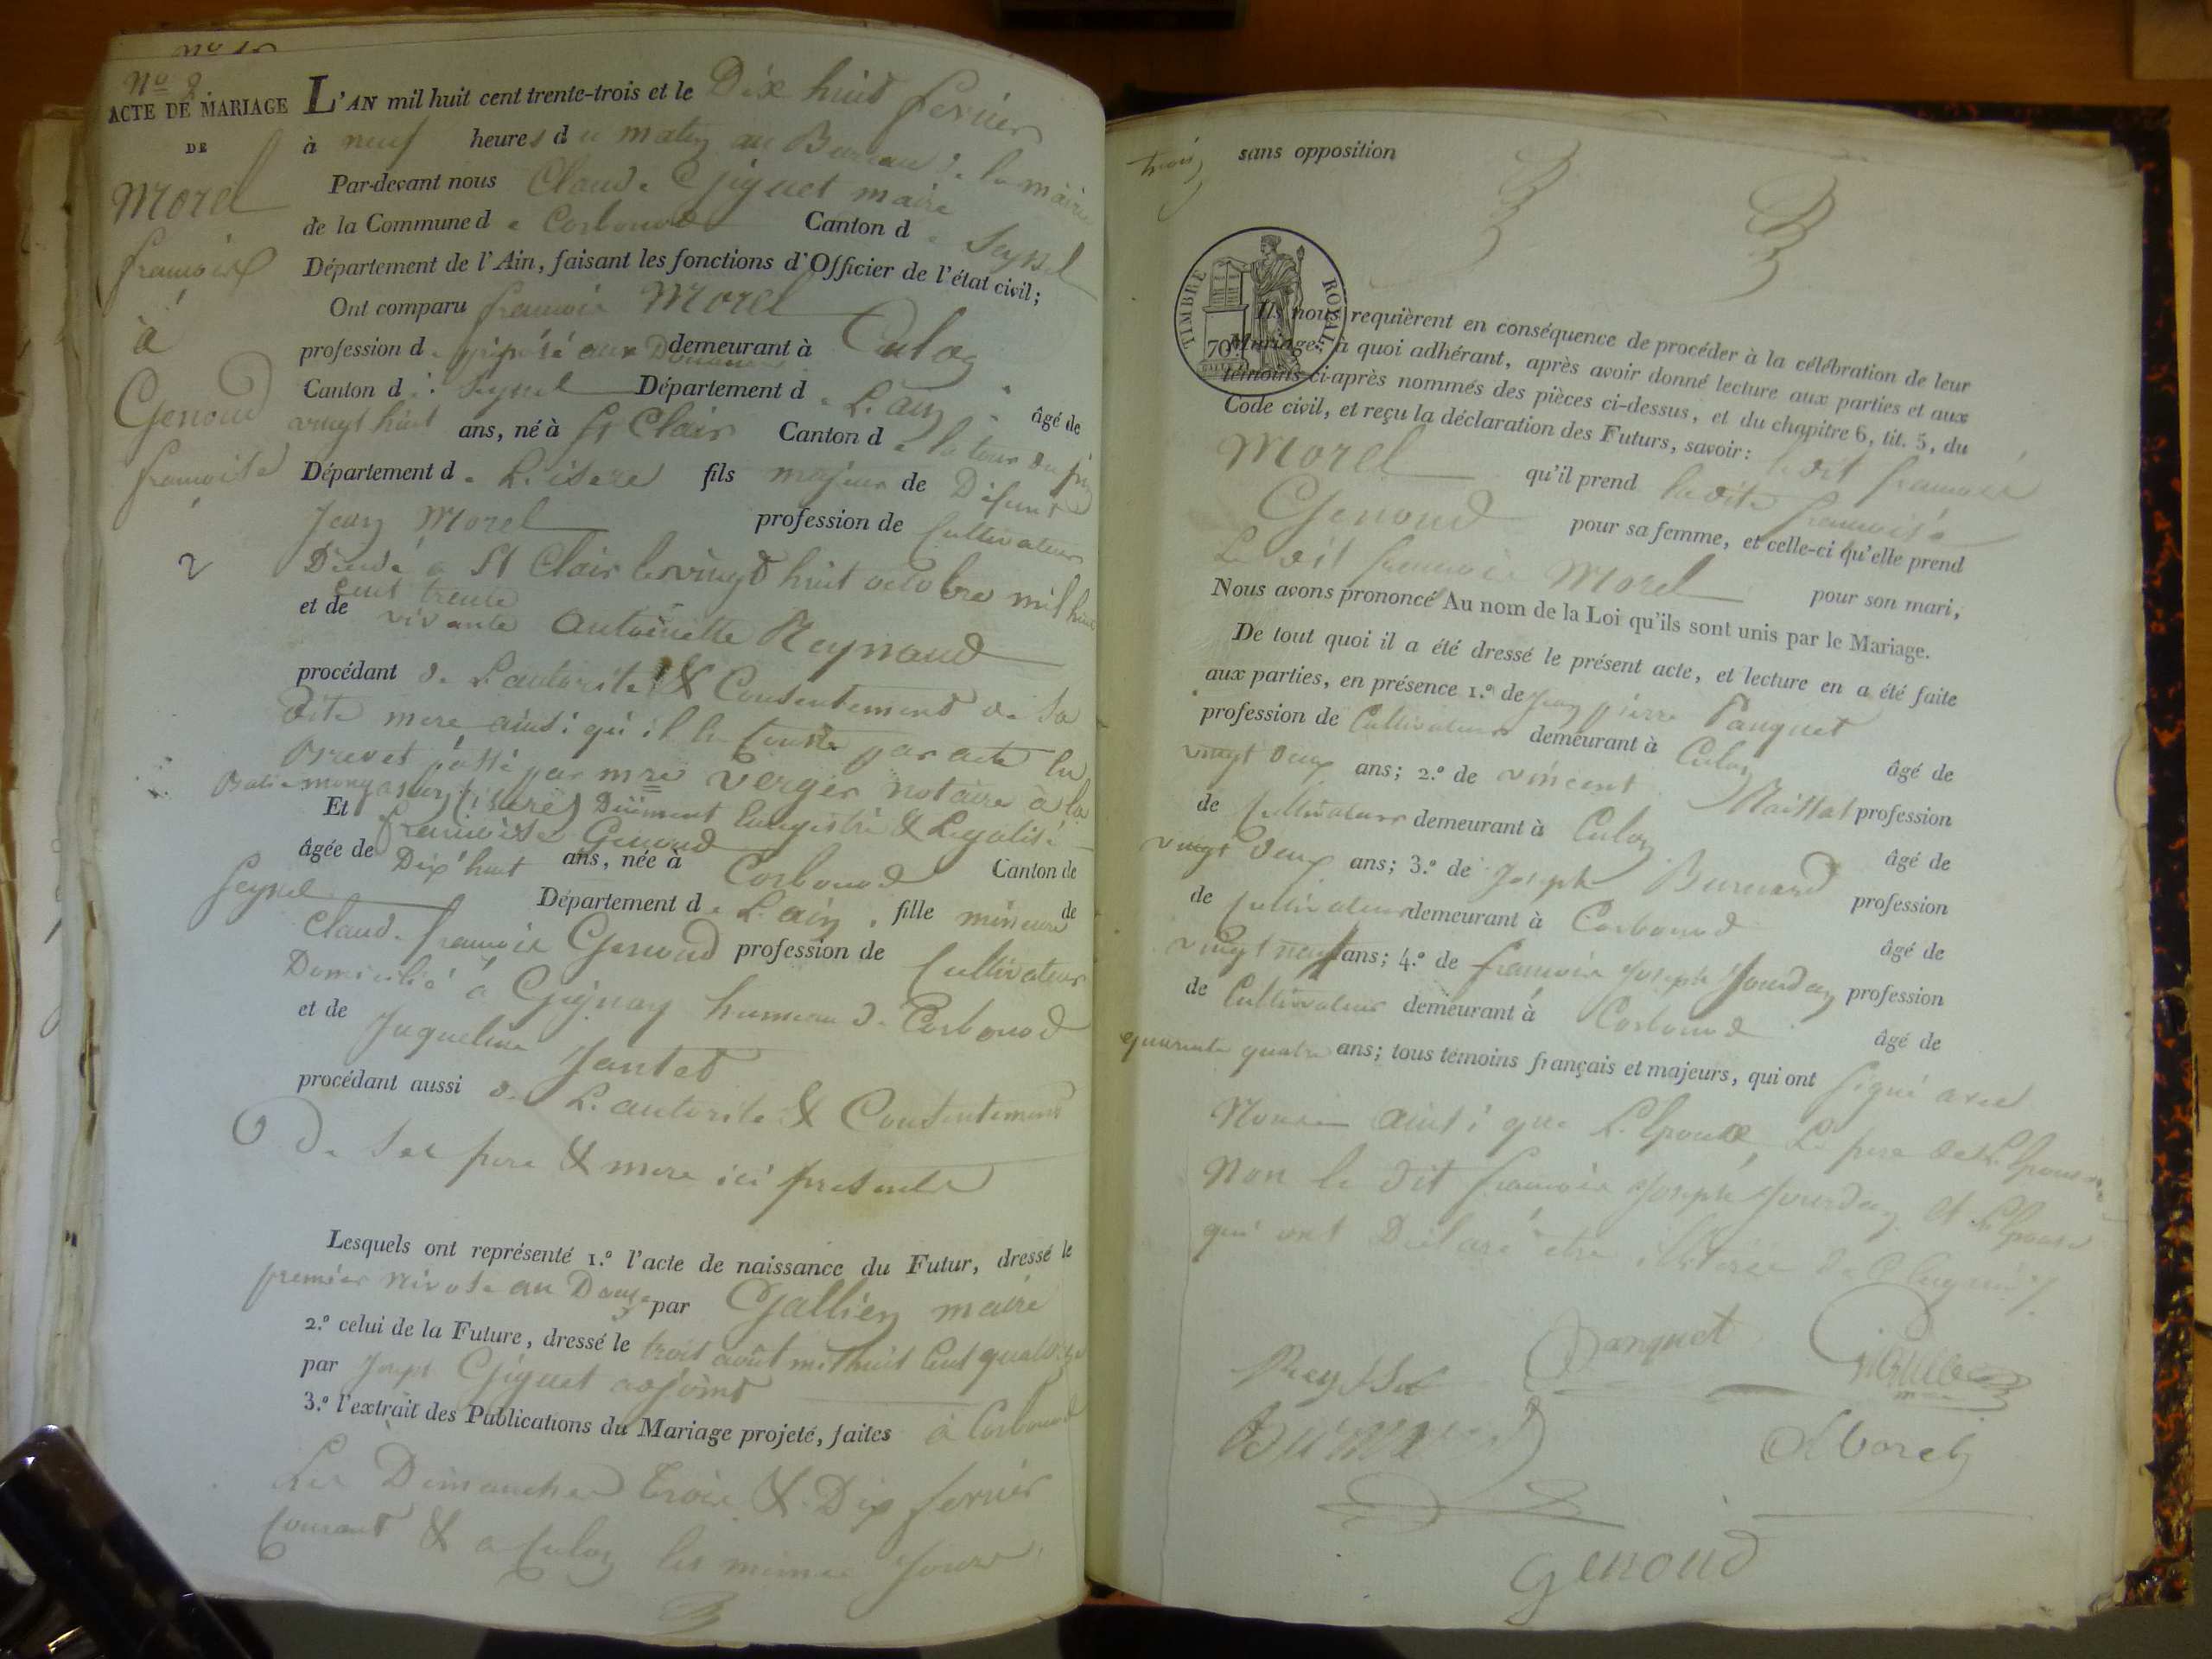 N° 2
ACTE DE MARIAGE
DE
Morel
françois
à
Genoud
françoise
2
L'AN mil huit cent trente-trois et le Dix huit fevrier
à neuf heures du matin au Bureau de la mairie
Par-devant nous Claude Giguet maire
de la Commune de Corbonod Canton de Seyssel
Département de l'Ain, faisant les fonctions d'Officier de l'état civil;
Ont comparu françois Morel
profession de préposé aux Douanes demeurant à Culoz
Canton de Seyssel Département de L'ain âgé de
vingt huit ans, né à St Clair Canton de la tour du pin
Département de L'isere fils majeur de Defunt
Jean Morel profession de Cultivateur
Decedé à St Clair le vingt huit octobre mil huit
cent trente
et de vivante Antoinette Reynaud
procédant de L'autorité & Consentement de sa
dite mere ainsi qu'il le Conste par acte en
Brevet passé par mre Verger notaire à la
Batie mongascon (isere) Duement Enregistré & Legalisé
Et françoise Genoud
âgée de Dix huit ans, née à Corbonod Canton de
Seyssel Département de L'ain, fille mineure de
Claude françois Genoud profession de Cultivateur
Domicilié à Gignay hameau de Corbonod
et de Jaqueline Jantet
procédant aussi de L'autorite & Consentement
De ses pere & mere ici presents
Lesquels ont représenté 1.º l'acte de naissance du Futur, dressé le
premier nivose an Douze par Gallien maire
2.º celui de la Future, dressé le trois août mil huit Cent quatorze
par Joseph Giguet adjoint
3.º l'extrait des Publications du Mariage projeté, faites à Corbonod
Les Dimanches trois & Dix fevrier
Courant & a Culoz les memes Jours
trois
sans opposition
TIMBRE ROYAL
70
Ils nous requièrent en conséquence de procéder à la célébration de leur
Mariage; à quoi adhérant, après avoir donné lecture aux parties et aux
témoins ci-après nommés des pièces ci-dessus, et du chapitre 6, tit. 5, du
Code civil, et reçu la déclaration des Futurs, savoir: le dit françois
Morel qu'il prend la dite françoise
Genoud pour sa femme, et celle-ci qu'elle prend
Le dit françois Morel pour son mari,
Nous avons prononcé Au nom de la Loi qu'ils sont unis par le Mariage.
De tout quoi il a été dressé le présent acte, et lecture en a été faite
aux parties, en présence 1.º de Jean pierre Panquet
profession de Cultivateur demeurant à Culoz âgé de
vingt deux ans; 2.º de vincent profession
de Cultivateur demeurant à Culoz âgé de
vingt deux ans; 3.º de Joseph Burnard profession
de Cultivateur demeurant à Corbonod âgé de
vingt neuf ans; 4.º de françois Joseph Jourdan profession
de Cultivateur demeurant à Corbonod âgé de
quarante quatre ans; tous témoins français et majeurs, qui ont signé avec
Nous ainsi que L'Epoux, Le pere de L'Epouse
Non le dit françois Joseph Jourdan et L'Epouse
qui ont Declaré être illiterés de Ce Enquis
Panquet
Morel
Genoud